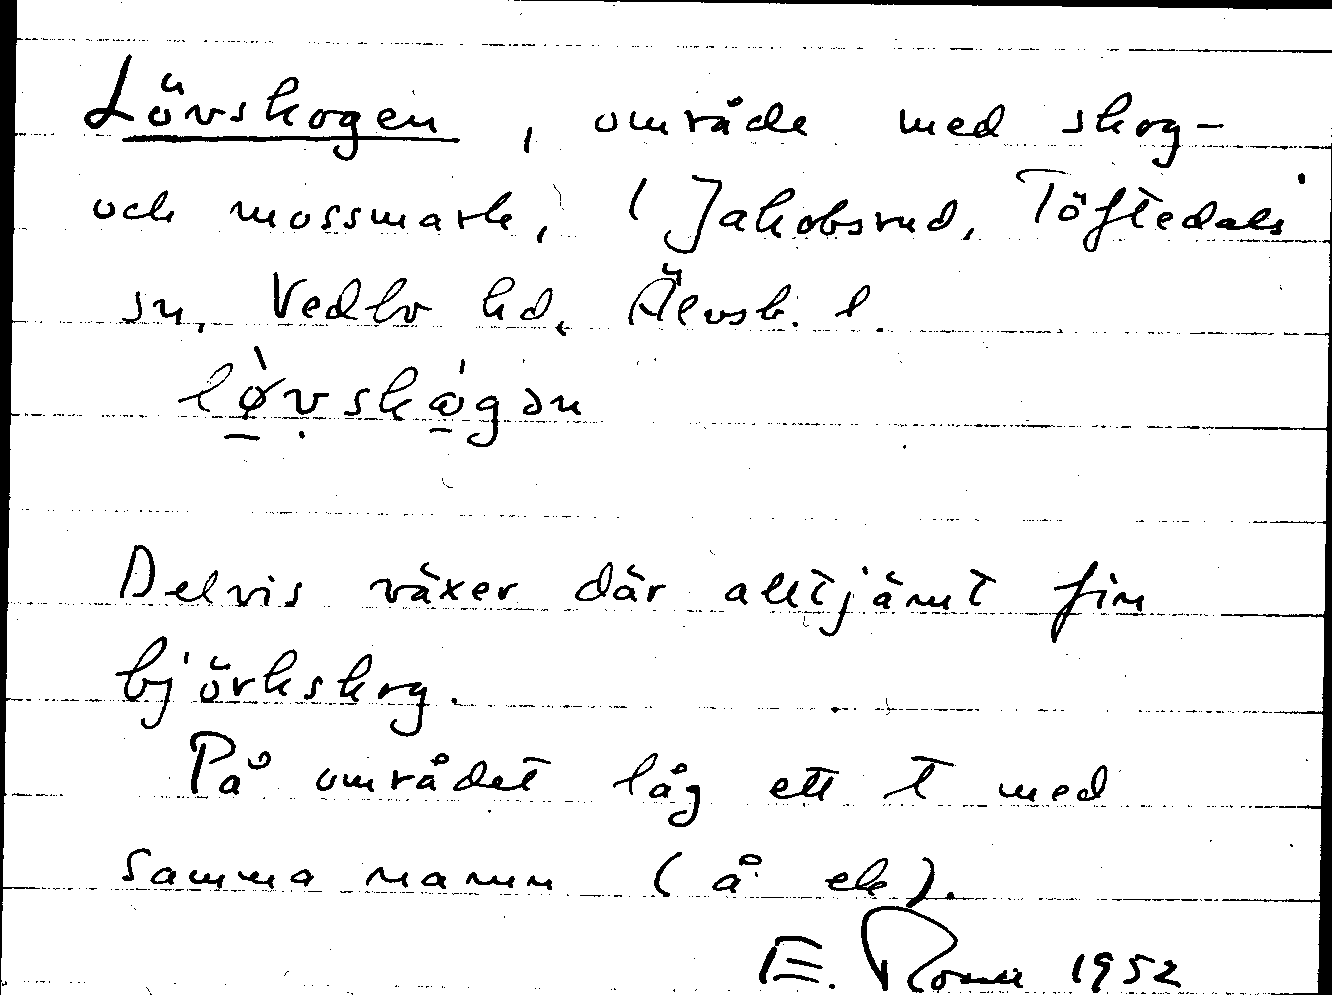 Lövskogen, område med skog-
och mossmark, i Jakobsrud, Töftedals
sn, Vedbo hd. Älvsb. l.
lø̀vskågən
Delvis växer där alltjämt fin
björkskog.
På området låg ett t med
samma namn (å ek).
E. 1952